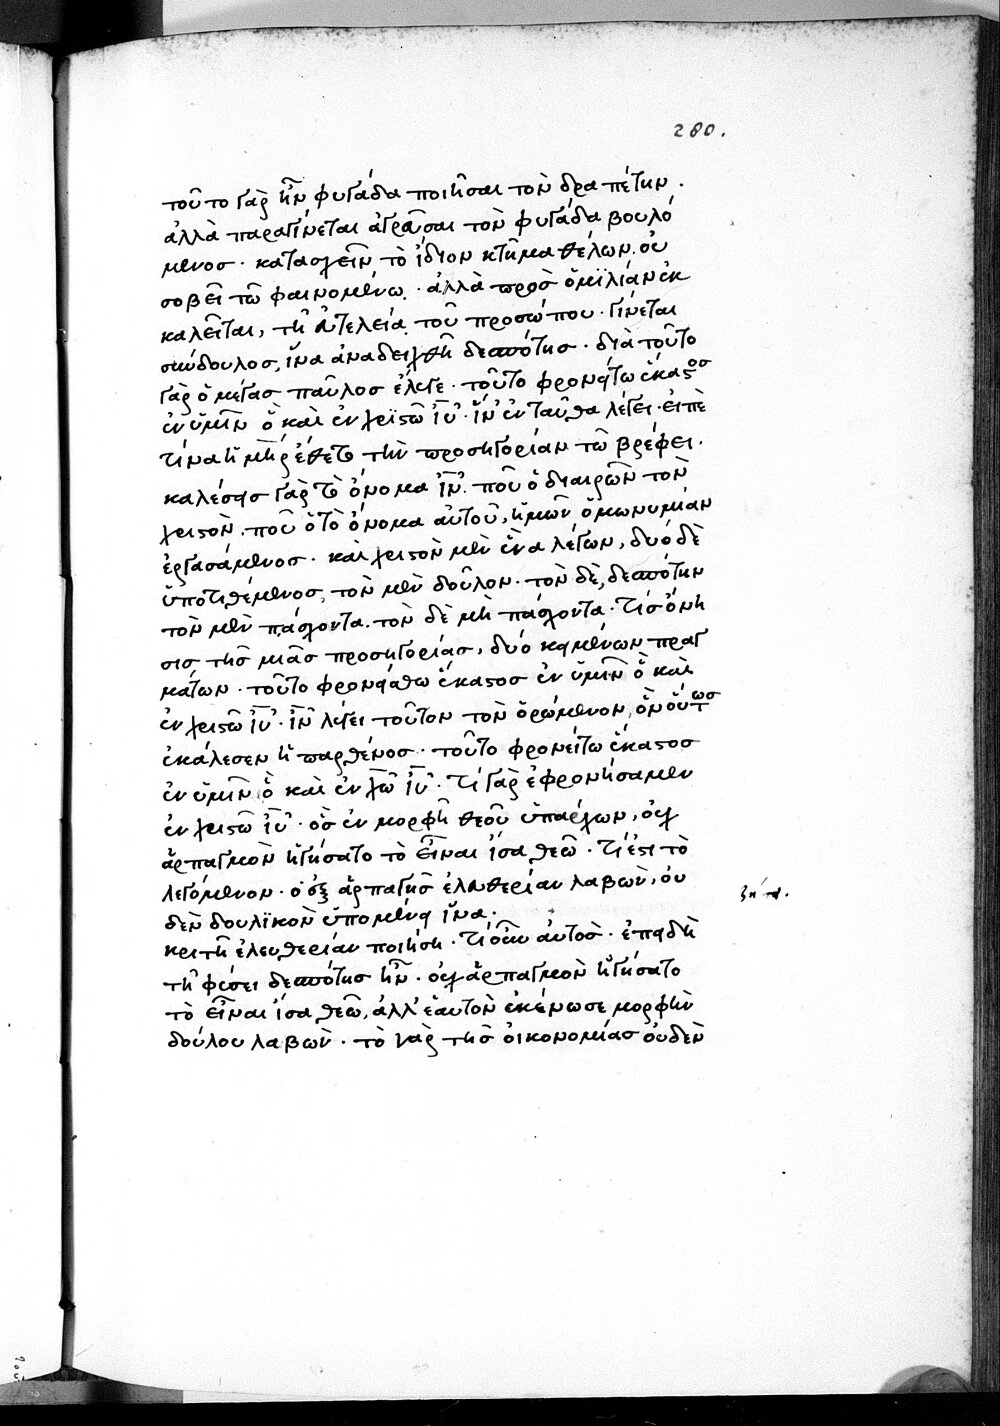 280.
τοῦτο γὰρ ἦν φυγάδα ποιῆσαι τὸν δραπέτην.
ἀλλὰ παραγίνεται ἀγρεῦσαι τὸν φυγάδα βουλό
μενος· κατασχεῖν τὸ ἴδιον κτῆμα θέλων. οὐ
σοβεῖ τῶ φαινομένω· ἀλλὰ πρὸς ὁμιλίαν ἐκ
καλεῖται, τῆ εὐτελεία τοῦ προσώπου· γίνεται
σύνδουλος, ἵνα ἀναδειχθῆ δεσπότης· διὰ τοῦτο
γὰρ ὁ μέγας παῦλος ἔλεγε· τοῦτο φρονείτω ἕκαστος
ἐν ὑμῖν ὃ καὶ ἐν χριστῶ ἰῦ· ἰν̅ ἐνταῦθα λέγει· εἰπὲ
τίνα ἡ μηρ̅ ἔθετο τὴν προσηγορίαν τῶ βρέφει·
καλέσεις γὰρ τὸ ὄνομα ἰν̅· ποῦ ὁ διαιρῶν τὸν
χριστὸν. ποῦ ὁ τὸ ὄνομα αὐτοῦ, ἡμῶν ὁμωνυμίαν
ἐργασάμενος· καὶ χριστὸν μὲν ἕνα λέγων, δύο δὲ
ὑποτιθέμενος, τὸν μὲν δοῦλον· τὸν δὲ, δεσπότην
τὸν μὲν πάσχοντα. τὸν δὲ μὴ πάσχοντα· τίς ὄνη
σις τῆς μιᾶς προσηγορίας, δύο κειμένων πραγ
μάτων· τοῦτο φρονείσθω ἕκαστος ἐν ὑμῖν ὃ καὶ
ἐν χριστῶ ἰῦ· ἰν̅ λέγει τοῦτον τὸν ὁρώμενον, ὃν οὕτως
ἐκάλεσεν ἡ παρθένος· τοῦτο φρονείτω ἕκαστος
ἐν ὑμῖν ὃ καὶ ἐν χω̅ ἰῦ· τί γὰρ ἐφρονήσαμεν
ἐν χριστῶ ἰῦ· ὃς ἐν μορφῆ θεοῦ ὑπάρχων, οὐχ
ἁρπαγμὸν ἡγήσατο τὸ εἶναι ἴσα θεῶ· τί ἐστι τὸ
λεγόμενον· ὁ ἐξ ἁρπαγῆς ἐλευθερίαν λαβὼν, οὐ
δὲν δουλϊκὸν ὑπομένει ἵνα·
κριτῆ ἐλευθερίαν ποιήση· τί οὖν αὐτὸς· ἐπειδὴ
τῆ φύσει δεσπότης ἦν· οὐχ ἁρπαγμὸν ἡγήσατο
τὸ εἶναι ἴσα θεῶ, ἀλλ' ἑαυτὸν ἐκένωσε μορφὴν
δούλου λαβών· τὸ γὰρ τῆς οἰκονομίας οὐδὲν